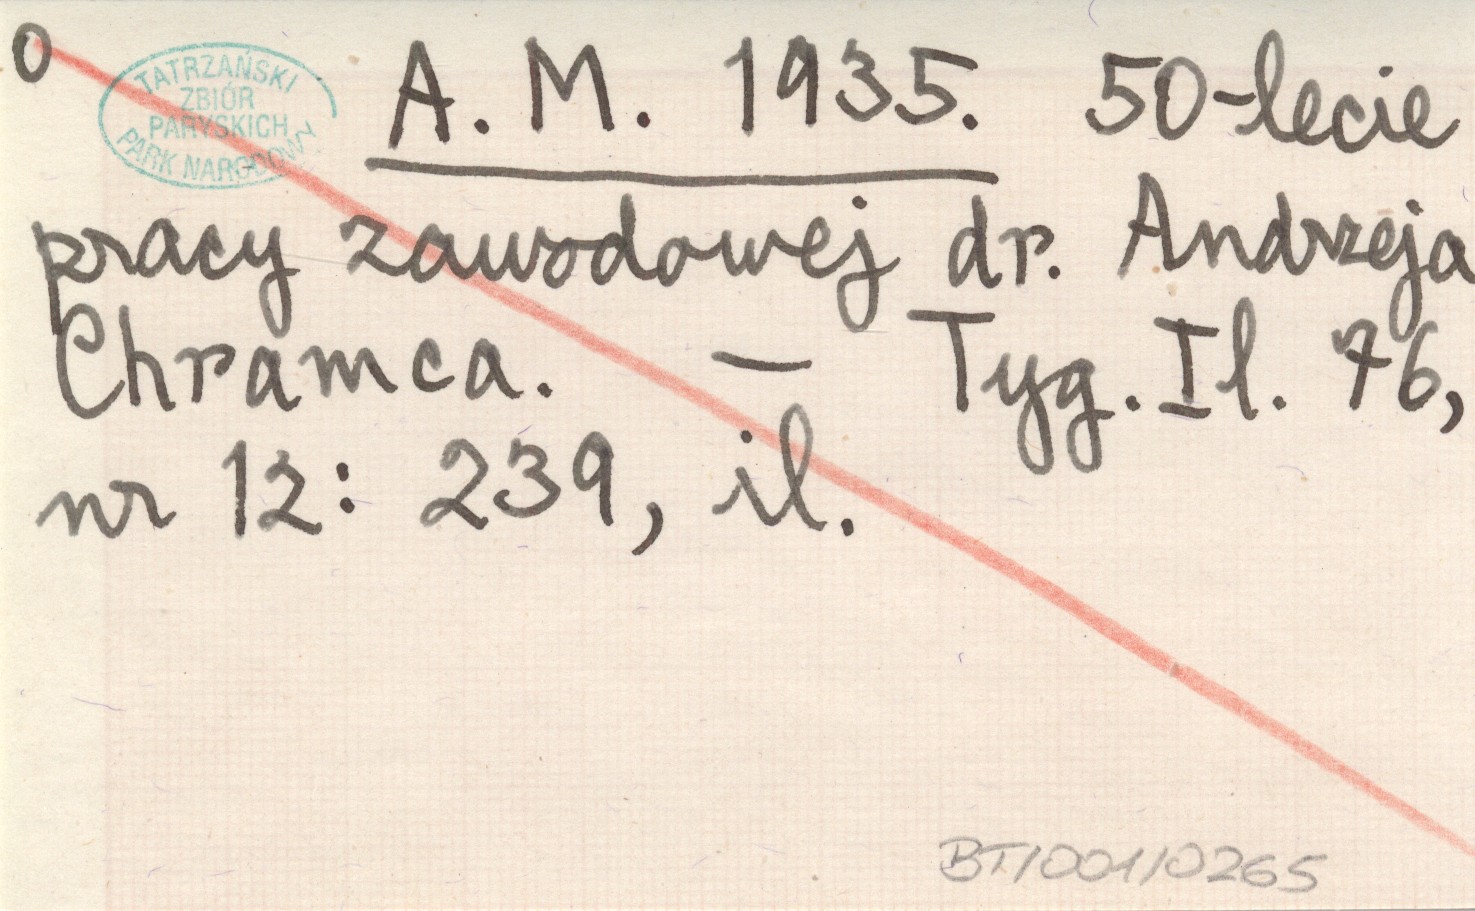 0
TATRZAŃSKI
ZBIÓR
PARYSKICH
PARK NARODOWY
A. M. 1935. 50-lecie
pracy zawodowej dr. Andrzeja
Chramca. — Tyg. Il. 76,
nr 12: 239, il.
BT/001/0265